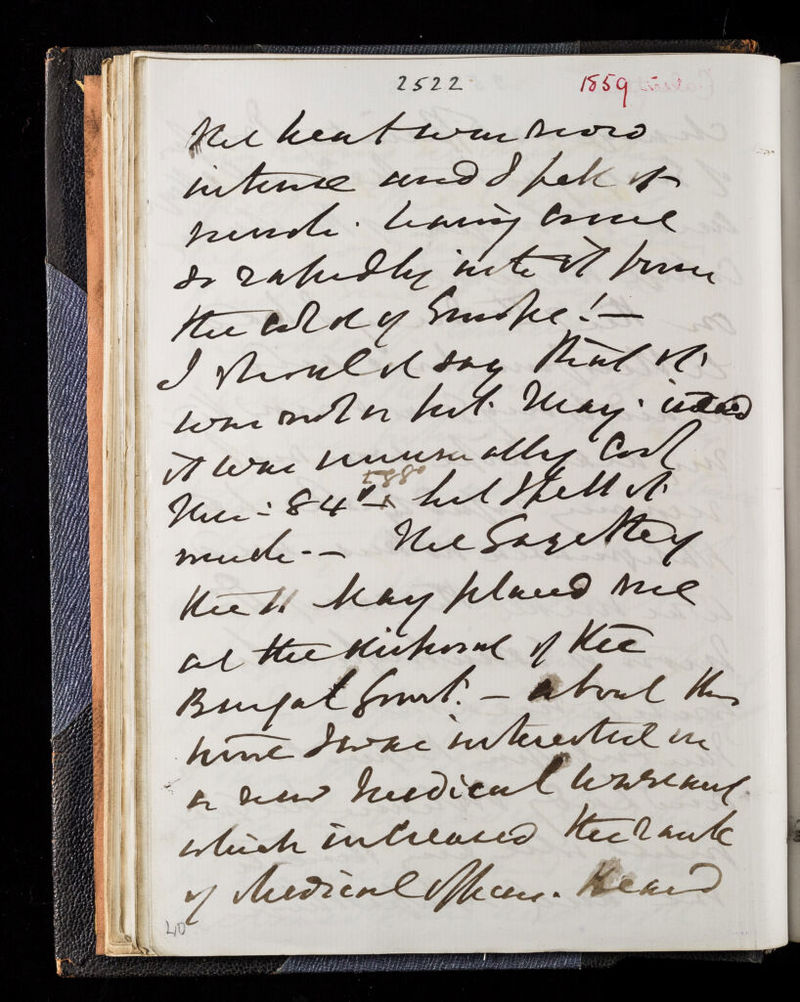 2522 1859
The heat was now
intense and I felt it
much. having come
so rapidly into it from
the cold of Europe! —
I should say that it
was not so hot. May.
it was unusually cool
Ther: 84° to 88° but I felt it
much - — The Gazette of
the 11 May placed me
at the disposal of the
Bengal Govmt. — about this
time I was interested in
a new Medical Warrant
which increased the rank
of Medical Officers. Heard
40